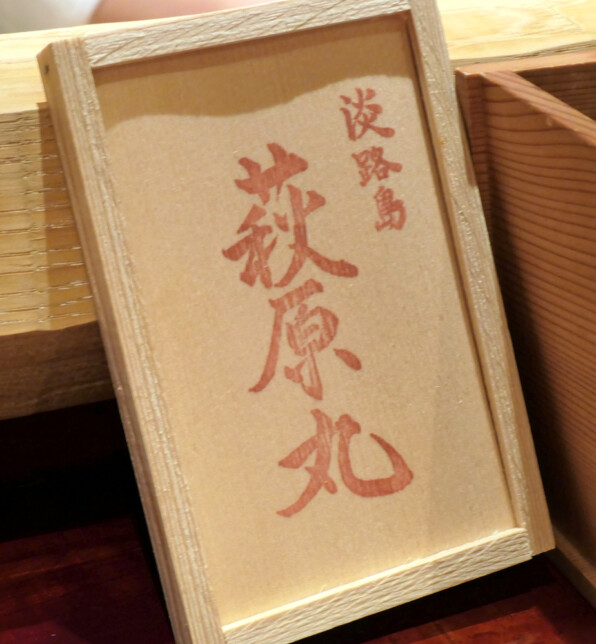 淡路島
萩原丸